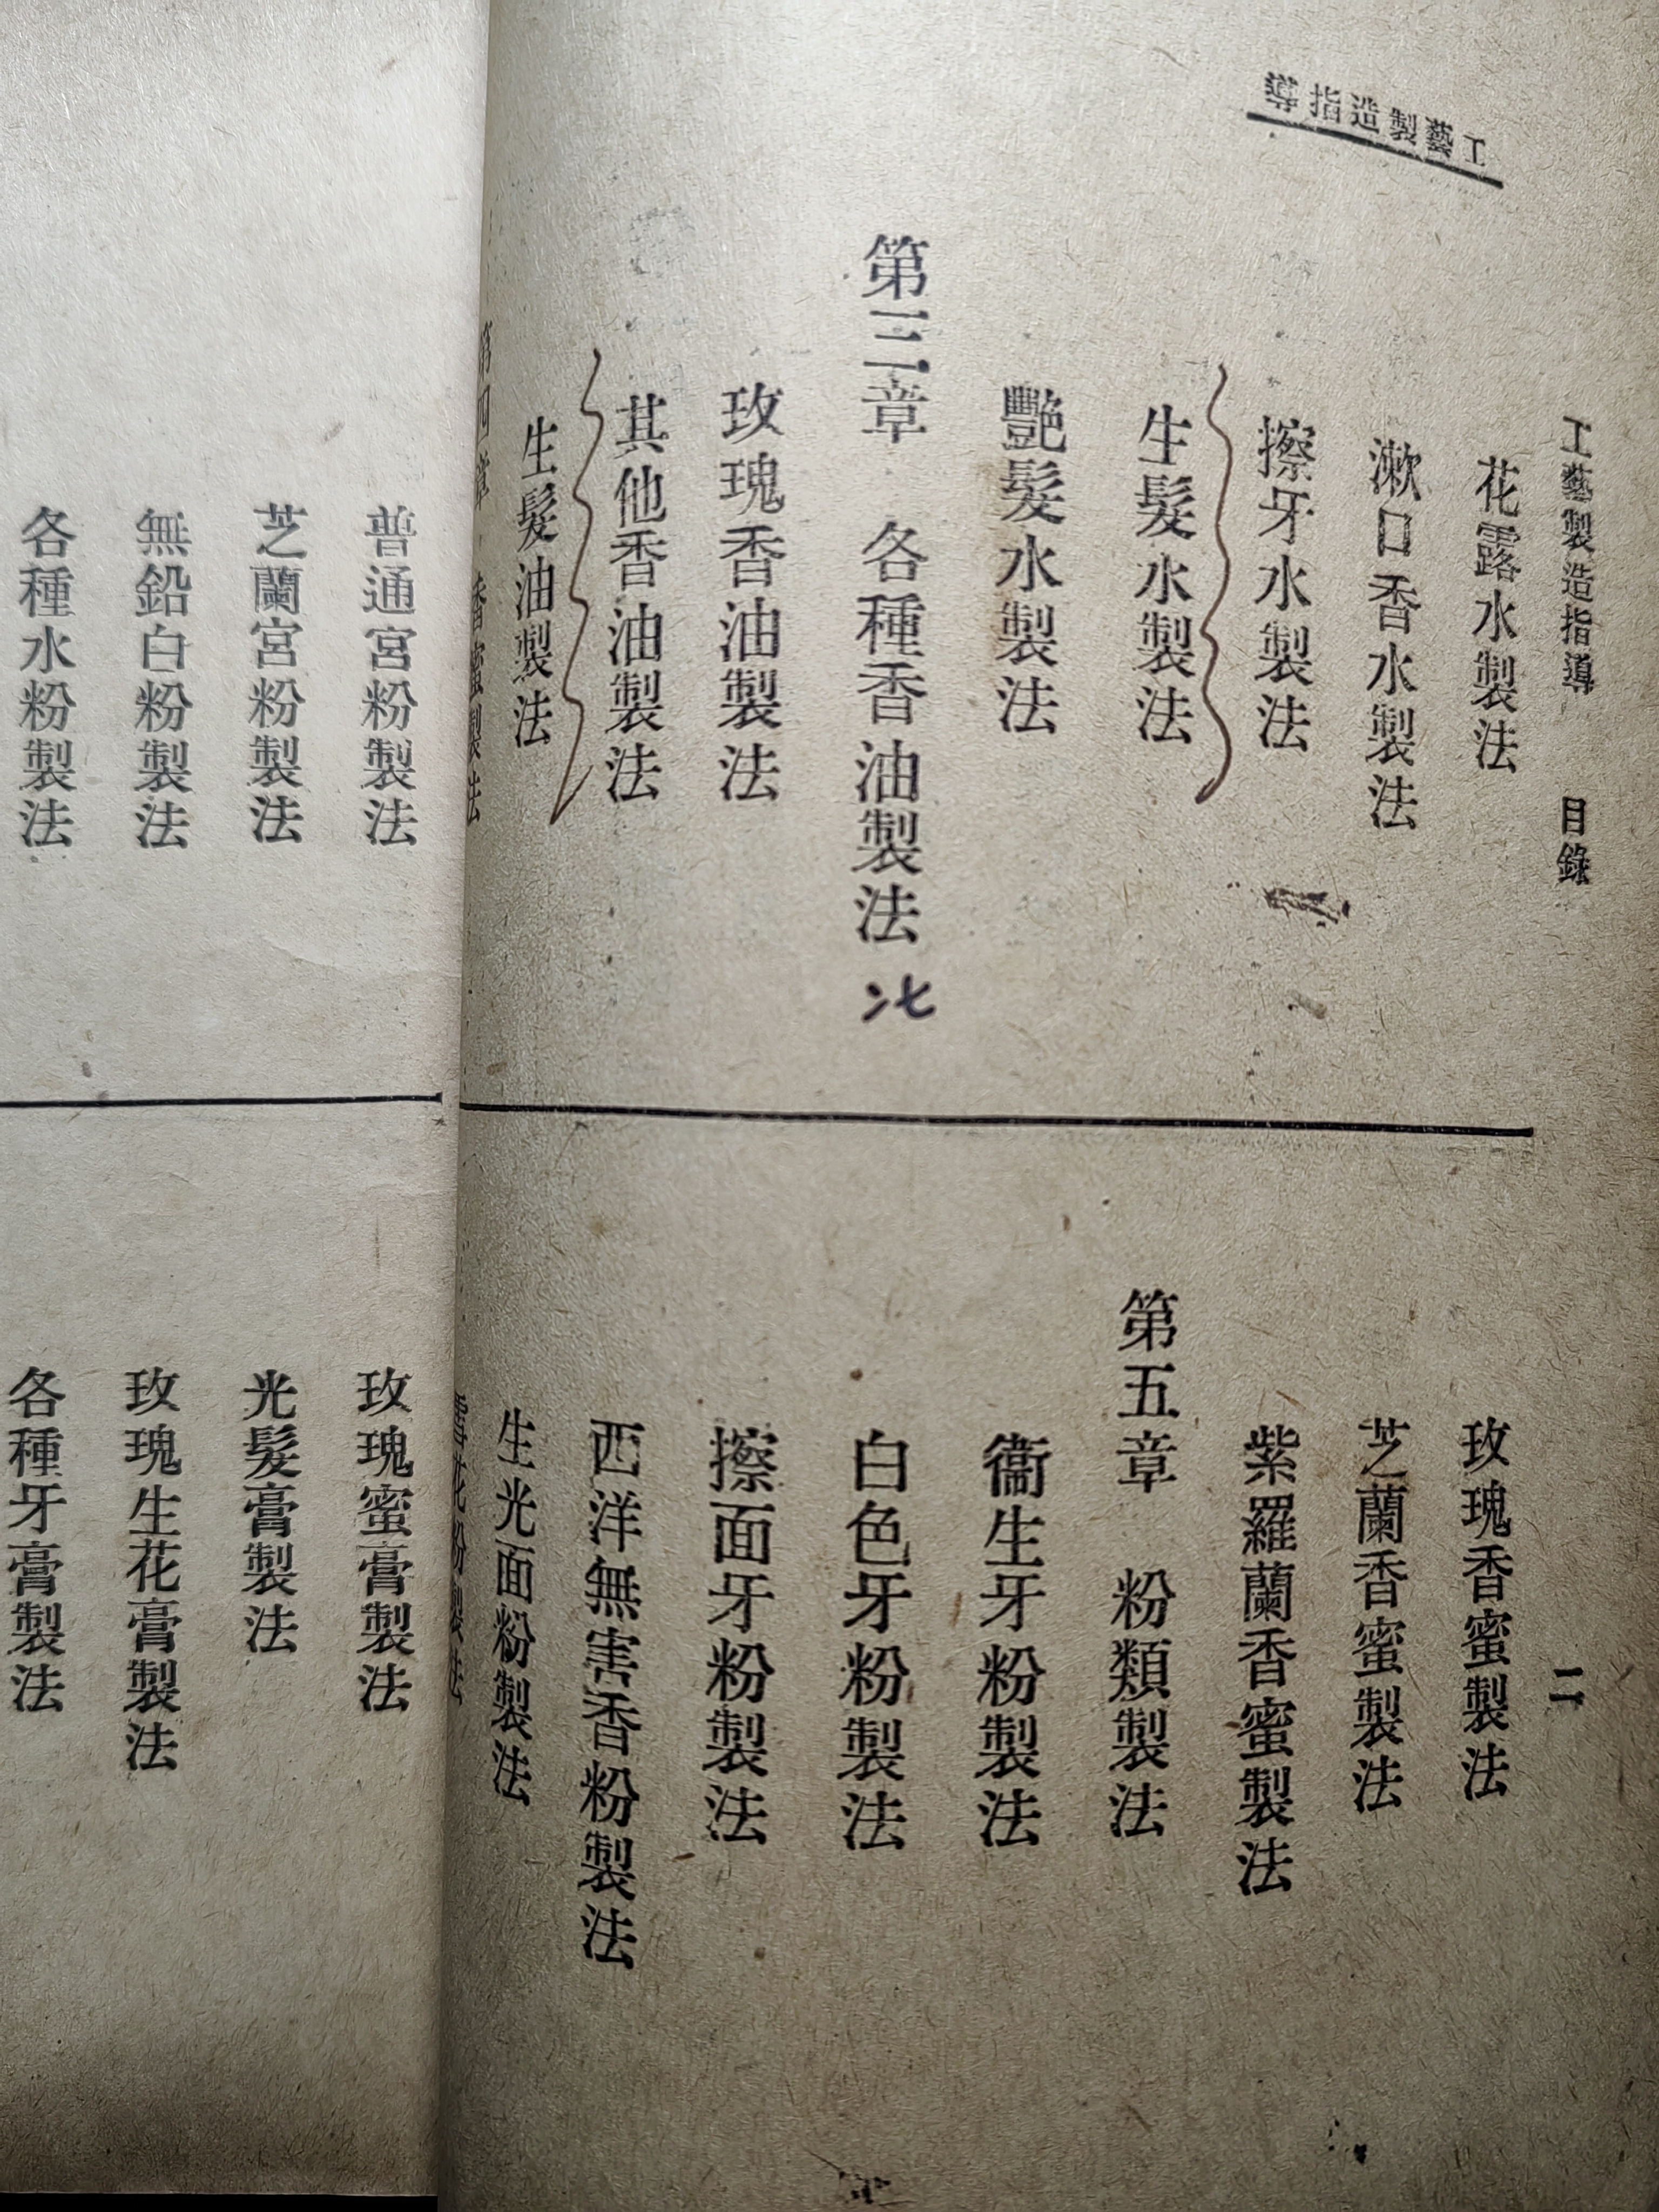 工藝製造指導
工藝製造指導 目錄
二
花露水製法
漱口香水製法
擦牙水製法
生髮水製法
艷髮水製法
第三章 各種香油製法
玫瑰香油製法
其他香油製法
生髮油製法
第四章 香蜜製法
玫瑰香蜜製法
芝蘭香蜜製法
紫羅蘭香蜜製法
第五章 粉類製法
衞生牙粉製法
白色牙粉製法
擦面牙粉製法
西洋無害香粉製法
生光面粉製法
雪花粉製法
普通宮粉製法
芝蘭宮粉製法
無鉛白粉製法
各種水粉製法
玫瑰蜜膏製法
光髮膏製法
玫瑰生花膏製法
各種牙膏製法